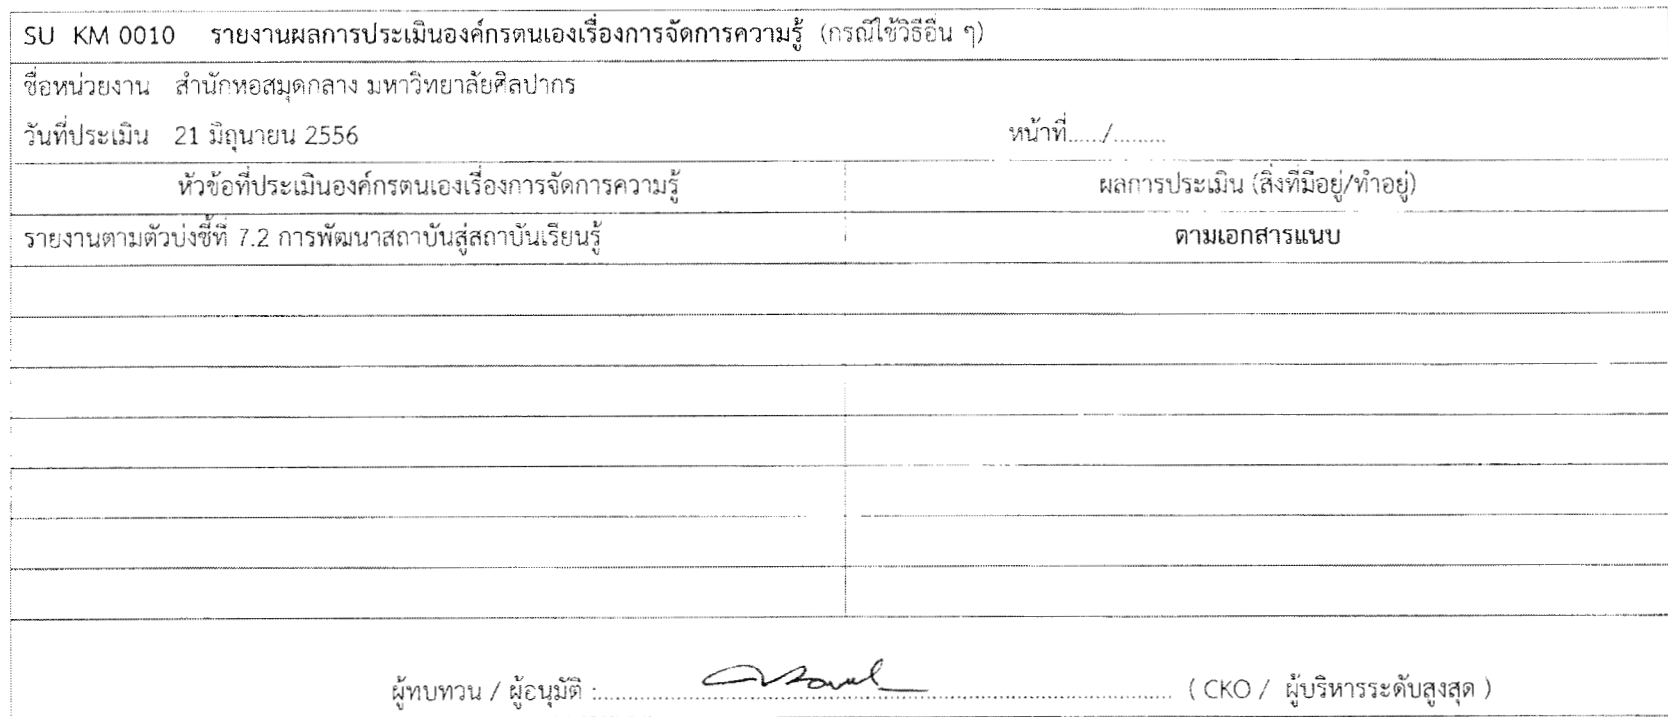 SU KM 0010 รายงานผลการประเมินองค์กรตนเองเรื่องการจัดการความรู้ (กรณีใช้วิธีอื่น ๆ)
ชื่อหน่วยงาน สำนักหอสมุดกลาง มหาวิทยาลัยศิลปากร
วันที่ประเมิน 21 มิถุนายน 2556 หน้าที่....../.........
หัวข้อที่ประเมินองค์กรตนเองเรื่องการจัดการความรู้ ผลการประเมิน (สิ่งที่มีอยู่/ทำอยู่)
รายงานตามตัวบ่งชี้ที่ 7.2 การพัฒนาสถาบันสู่สถาบันเรียนรู้ ตามเอกสารแนบ
ผู้ทบทวน / ผู้อนุมัติ :.................... ( CKO / ผู้บริหารระดับสูงสุด )